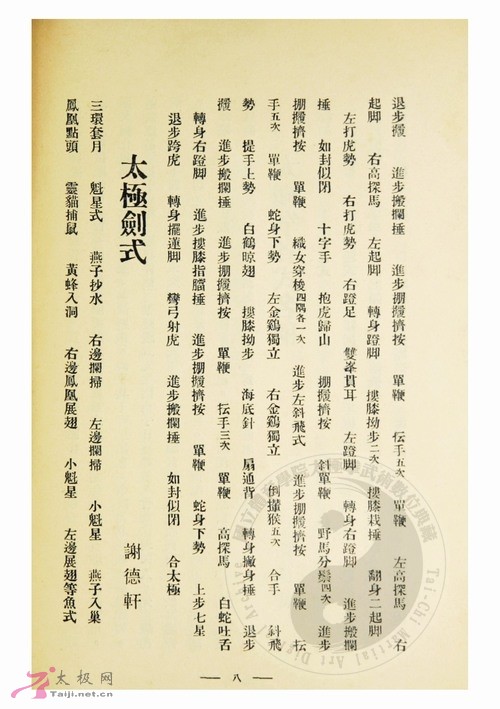 退步攦　進步搬攔捶　進步掤攦擠按　單鞭　抎手五次　單鞭　左高探馬　右
起脚　右高探馬　左起脚　轉身蹬脚　摟膝拗步二次　摟膝栽捶　翻身二起脚
左打虎勢　右打虎勢　右蹬足　雙峯貫耳　左蹬脚　轉身右蹬脚　進步搬攔
捶　如封似閉　十字手　抱虎歸山　掤攦擠按　斜單鞭　野馬分鬃四次　進步
掤攦擠按　單鞭　織女穿梭四隅各一次　進步左斜飛式　進步掤攦擠按　單鞭　抎
手五次　單鞭　蛇身下勢　左金鷄獨立　右金鷄獨立　倒攆猴五次　合手　斜飛
勢　提手上勢　白鶴晾翅　摟膝拗步　海底針　扇通背　轉身撇身捶　退步
攦　進步搬攔捶　進步掤攦擠按　單鞭　抎手三次　單鞭　高探馬　白蛇吐舌
轉身右蹬脚　進步摟膝指膪捶　進步掤攦擠按　單鞭　蛇身下勢　上步七星
退步跨虎　轉身擺蓮脚　彎弓射虎　進步搬攔捶　如封似閉　合太極
太極劍式
謝德軒
三環套月　魁星式　燕子抄水　左邊攔掃　右邊攔掃　小魁星　燕子入巢
鳳凰點頭　靈貓捕鼠　黃蜂入洞　右邊鳳凰展翅　小魁星　左邊展翅等魚式
八
太极网
Taiji.net.cn
Tai-Chi Martial Art Dig